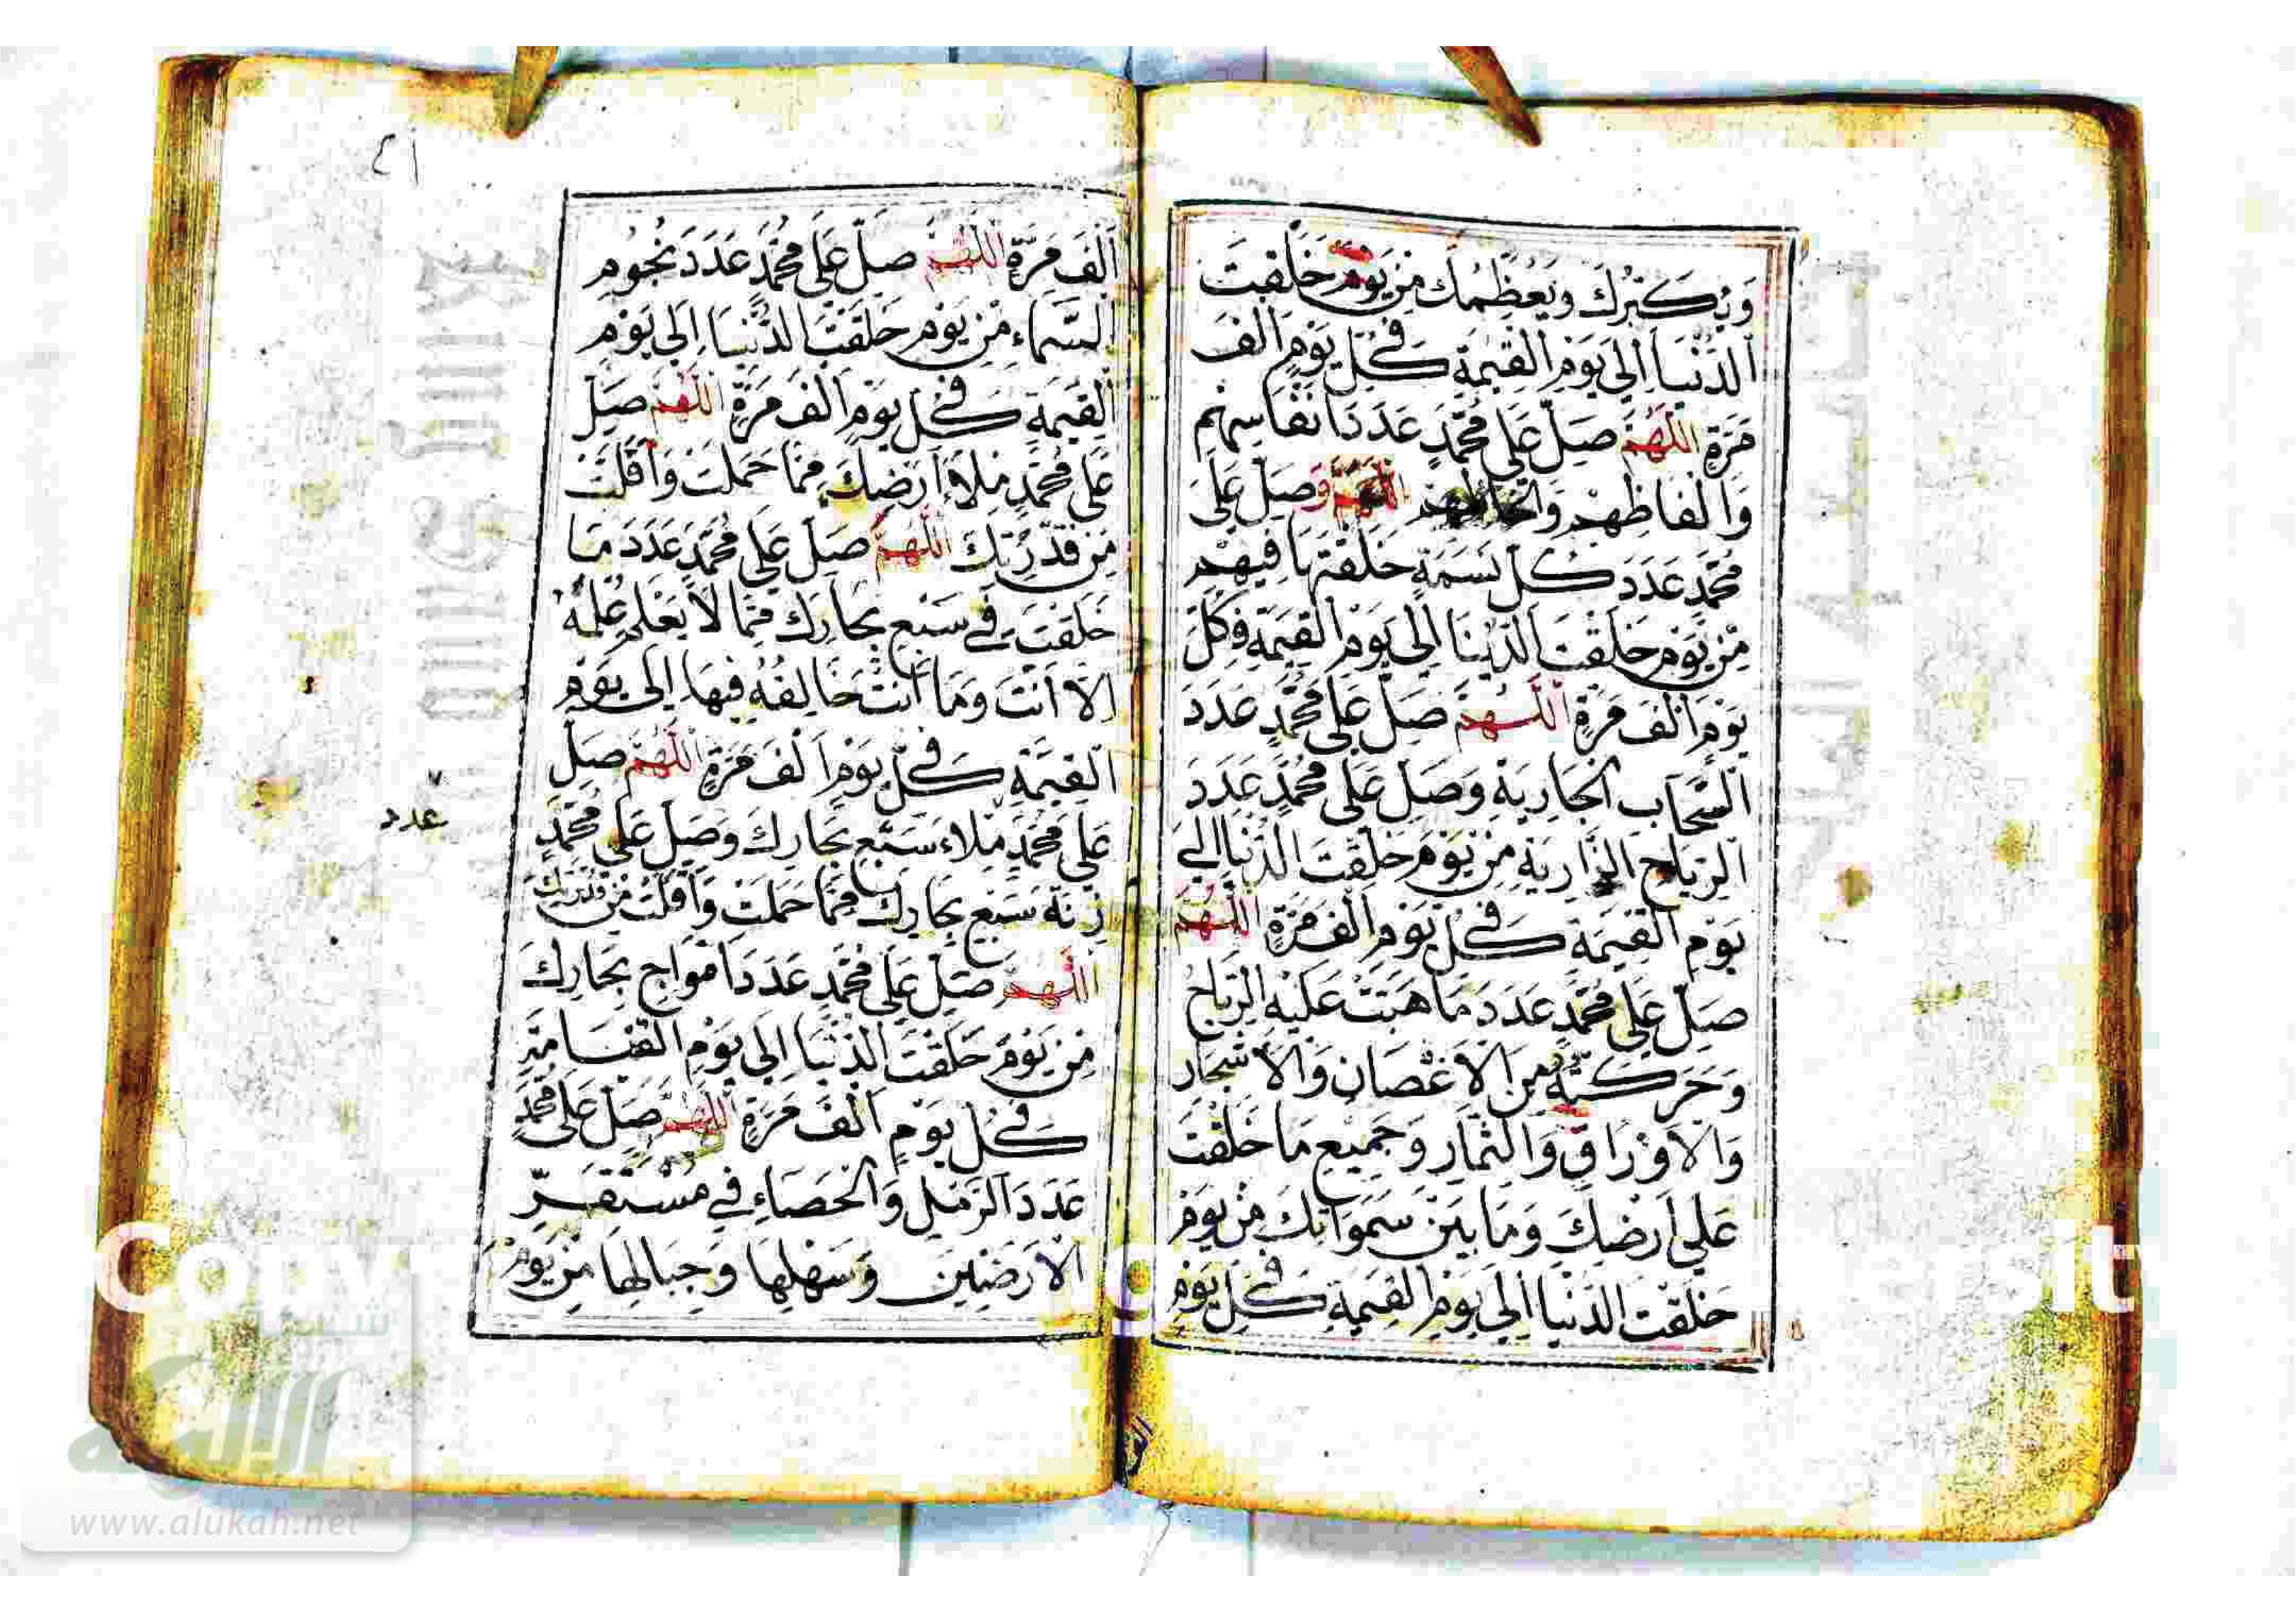 وَيُكَبِّرُكَ وَيُعَظِّمُكَ مِنْ يَوْمِ خَلَقْتَ
الدُّنْيَا إِلَى يَوْمِ الْقِيمَةِ فِي كُلِّ يَوْمٍ أَلْفَ
مَرَّةٍ اللَّهُمَّ صَلِّ عَلَى مُحَمَّدٍ عَدَدَ أَنْفَاسِهِمْ
وَأَلْفَاظِهِمْ وَأَلْحَاظِهِمْ اللَّهُمَّ وَصَلِّ عَلَى
مُحَمَّدٍ عَدَدَ كُلِّ نَسَمَةٍ خَلَقْتَهَا فِيهِمْ
مِنْ يَوْمِ خَلَقْتَ الدُّنْيَا إِلَى يَوْمِ الْقِيمَةِ فِي كُلِّ
يَوْمٍ أَلْفَ مَرَّةٍ اللَّهُمَّ صَلِّ عَلَى مُحَمَّدٍ عَدَدَ
السَّحَابِ الْجَارِيَةِ وَصَلِّ عَلَى مُحَمَّدٍ عَدَدَ
الرِّيَاحِ الذَّارِيَةِ مِنْ يَوْمِ خَلَقْتَ الدُّنْيَا إِلَى
يَوْمِ الْقِيمَةِ فِي كُلِّ يَوْمٍ أَلْفَ مَرَّةٍ اللَّهُمَّ
صَلِّ عَلَى مُحَمَّدٍ عَدَدَ مَا هَبَّتْ عَلَيْهِ الرِّيَاحُ
وَحَرَّكَتْهُ مِنَ الْأَغْصَانِ وَالْأَشْجَارِ
وَالْأَوْرَاقِ وَالثِّمَارِ وَجَمِيعِ مَا خَلَقْتَ
عَلَى أَرْضِكَ وَمَا بَيْنَ سَمَوَاتِكَ مِنْ يَوْمِ
خَلَقْتَ الدُّنْيَا إِلَى يَوْمِ الْقِيمَةِ فِي كُلِّ يَوْمٍ
٤١
أَلْفَ مَرَّةٍ اللَّهُمَّ صَلِّ عَلَى مُحَمَّدٍ عَدَدَ نُجُومِ
السَّمَاءِ مِنْ يَوْمِ خَلَقْتَ الدُّنْيَا إِلَى يَوْمِ
الْقِيمَةِ فِي كُلِّ يَوْمٍ أَلْفَ مَرَّةٍ اللَّهُمَّ صَلِّ
عَلَى مُحَمَّدٍ مِلَاءَ أَرْضِكَ مِمَّا حَمَلَتْ وَأَقَلَّتْ
مِنْ قُدْرَتِكَ اللَّهُمَّ صَلِّ عَلَى مُحَمَّدٍ عَدَدَ مَا
خَلَقْتَ فِي سَبْعِ بِحَارِكَ مِمَّا لَا يَعْلَمُ عِلْمَهُ
إِلَّا أَنْتَ وَمَا أَنْتَ خَالِقُهُ فِيهَا إِلَى يَوْمِ
الْقِيمَةِ فِي كُلِّ يَوْمٍ أَلْفَ مَرَّةٍ اللَّهُمَّ صَلِّ
عدد
عَلَى مُحَمَّدٍ مِلَاءَ سَبْعِ بِحَارِكَ وَصَلِّ عَلَى مُحَمَّدٍ
زِنَةَ سَبْعِ بِحَارِكَ مِمَّا حَمَلَتْ وَأَقَلَّتْ مِنْ قُدْرَتِكَ
اللَّهُمَّ صَلِّ عَلَى مُحَمَّدٍ عَدَدَ أَمْوَاجِ بِحَارِكَ
مِنْ يَوْمِ خَلَقْتَ الدُّنْيَا إِلَى يَوْمِ الْقِيَامَةِ
فِي كُلِّ يَوْمٍ أَلْفَ مَرَّةٍ اللَّهُمَّ صَلِّ عَلَى مُحَمَّدٍ
عَدَدَ الرَّمْلِ وَالْحَصَاءِ فِي مُسْتَقَرِّ
الْأَرَضِينَ وَسَهْلِهَا وَجِبَالِهَا مِنْ يَوْمِ
شبكة
الألوكة
www.alukah.net